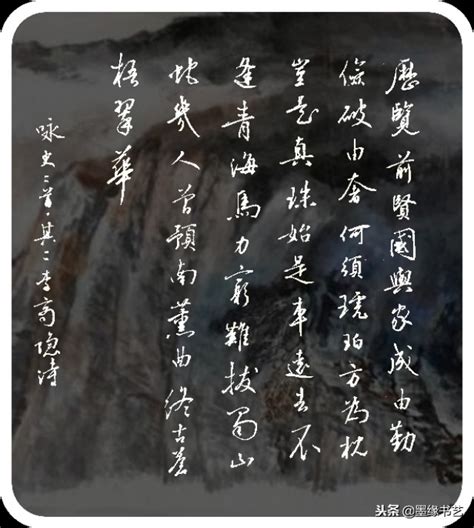 歷覽前賢國與家成由勤
儉破由奢何須琥珀方為枕
豈是真珠始是車遠去不
逢青海馬力窮難拔蜀山
蛇幾人曾預南薰曲終古蒼
梧翠華
咏史二首·其二李商隐诗
头条@墨缘书艺